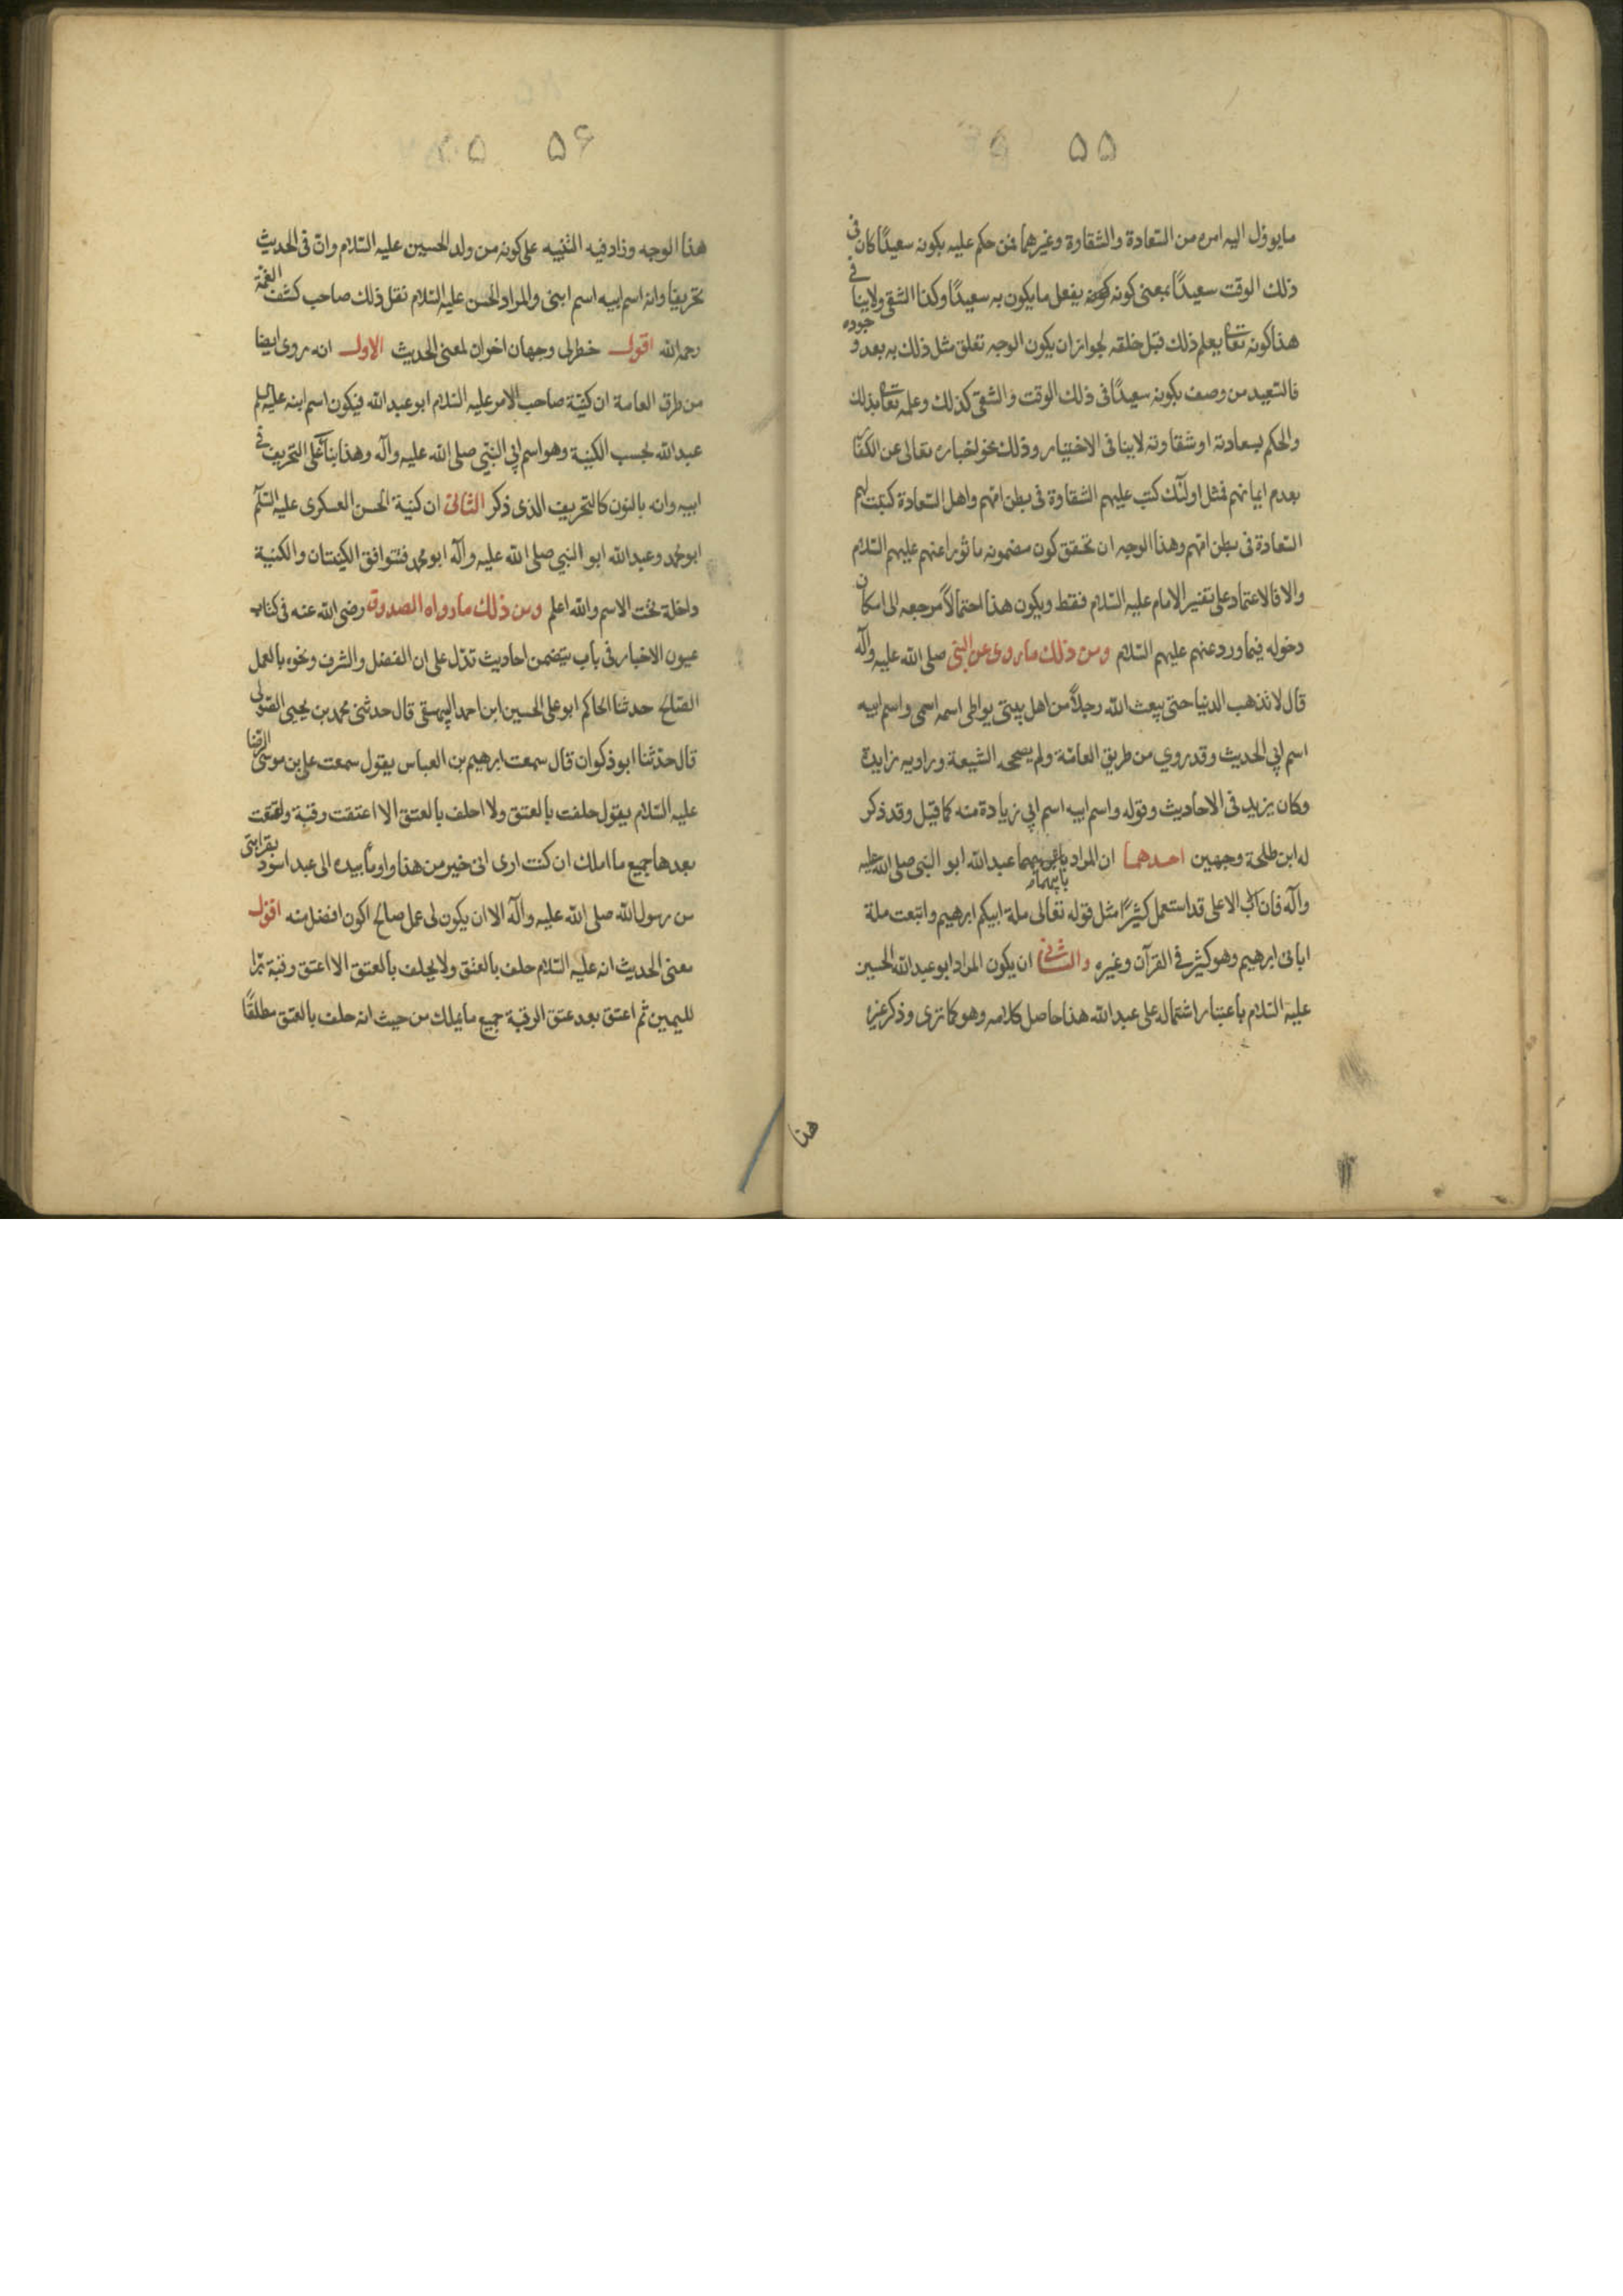 ۵۵
ما يوول اليه امره من السعادة والشقاوة وغيرهما فمن حكم عليه بكونه سعيدًا كان فى
ذلك الوقت سعيدًا بمعنى كونه يفعل ما يكون به سعيدًا وكذا الشقى ولا ينافى
هذا كونه تعا يعلم ذلك قبل خلقه لجواز ان يكون الوجه تعلق مثل ذلك به بعد وجوده
فالسعيد من وصف بكونه سعيدًا فى ذلك الوقت والشقى كذلك وعلمه تعا بذلك
والحكم بسعادته او شقاوته لا ينافى الاختيار وذلك نحو اخباره تعالى عن الكفار
بعدم ايمانهم فمثل اولئك كتب عليهم الشقاوة فى بطن امهم واهل السعادة كتبت لهم
السعادة فى بطن امهم وهذا الوجه ان تحقق كون مضمونه ماثورا عنهم عليهم السلام
والا فالاعتماد على تفسير الامام عليه السلام فقط ويكون هذا احتمالاً مرجعه الى امكان
دخوله فيما ورد عنهم عليهم السلام ومن ذلك ما روى عن النبى صلى الله عليه وآله
قال لا تذهب الدنيا حتى يبعث الله رجلاً من اهل بيتى يواطى اسمه اسمى واسم ابيه
اسم ابي الحديث وقد روي من طريق العامّة ولم يصححه الشيعة وراويه زايدة
وكان يزيد فى الاحاديث وقوله واسم ابيه اسم ابي زيادة منه كما قيل وقد ذكر
له ابن طلحة وجهين احدهما ان المراد بابيهما عبد الله ابو النبى صلى الله عليه
وآله فان الاب الاعلى قد استعمل كثيرًا مثل قوله تعالى ملة ابيكم ابرهيم واتبعت ملة
ابائى ابرهيم وهو كثير فى القرآن وغيره والثانى ان يكون المراد ابو عبد الله الحسين
عليه السلام باعتبار اشتماله على عبد الله هذا حاصل كلامه وهو كما ترى وذكر غيره
هذا
۵۶
هذا الوجه وزاد فيه التنبيه على كونه من ولد الحسين عليه السلام وان فى الحديث
تحريفا وانه اسم ابيه اسم ابنى والمراد الحسن عليه السلام نقل ذلك صاحب كشف الغمة
رحمه الله اقول خطر لى وجهان اخران لمعنى الحديث الاول انه روى ايضا
من طرق العامة ان كنية صاحب الامر عليه السلام ابو عبد الله فيكون اسم ابنه عليه السلم
عبد الله بحسب الكنية وهو اسم ابي النبي صلى الله عليه وآله وهذا بناءً على التحريف فى
ابيه وانه بالنون كالتحريف الذى ذكر الثانى ان كنية الحسن العسكرى عليه السلم
ابو محمد وعبد الله ابو النبي صلى الله عليه وآله ابو محمد فتتوافق الكنيتان والكنية
داخلة تحت الاسم والله اعلم ومن ذلك ما رواه الصدوق رضى الله عنه فى كتاب
عيون الاخبار فى باب يتضمن احاديث تدل على ان الفضل والشرف ونحوه بالعمل
الصالح حدثنا الحاكم ابو على الحسين ابن احمد البيهقى قال حدثنى محمد بن يحيى الصولى
قال حدّثنا ابو ذكوان قال سمعت ابرهيم بن العباس يقول سمعت على بن موسى الرضا
عليه السلام يقول حلفت بالعتق ولا احلف بالعتق الا اعتقت رقبة واعتقت
بعدها جميع ما املك ان كنت ارى انى خير من هذا واومأ بيده الى عبد اسود بقرابتى
من رسول الله صلى الله عليه وآله الا ان يكون لى عمل صالح اكون افضل منه اقول
معنى الحديث انه عليه السلام حلف بالعتق ولا يحلف بالعتق الا اعتق رقبة برّا
لليمين ثم اعتق بعد عتق الرقبة جميع ما يملك من حيث انه حلف بالعتق مطلقًا